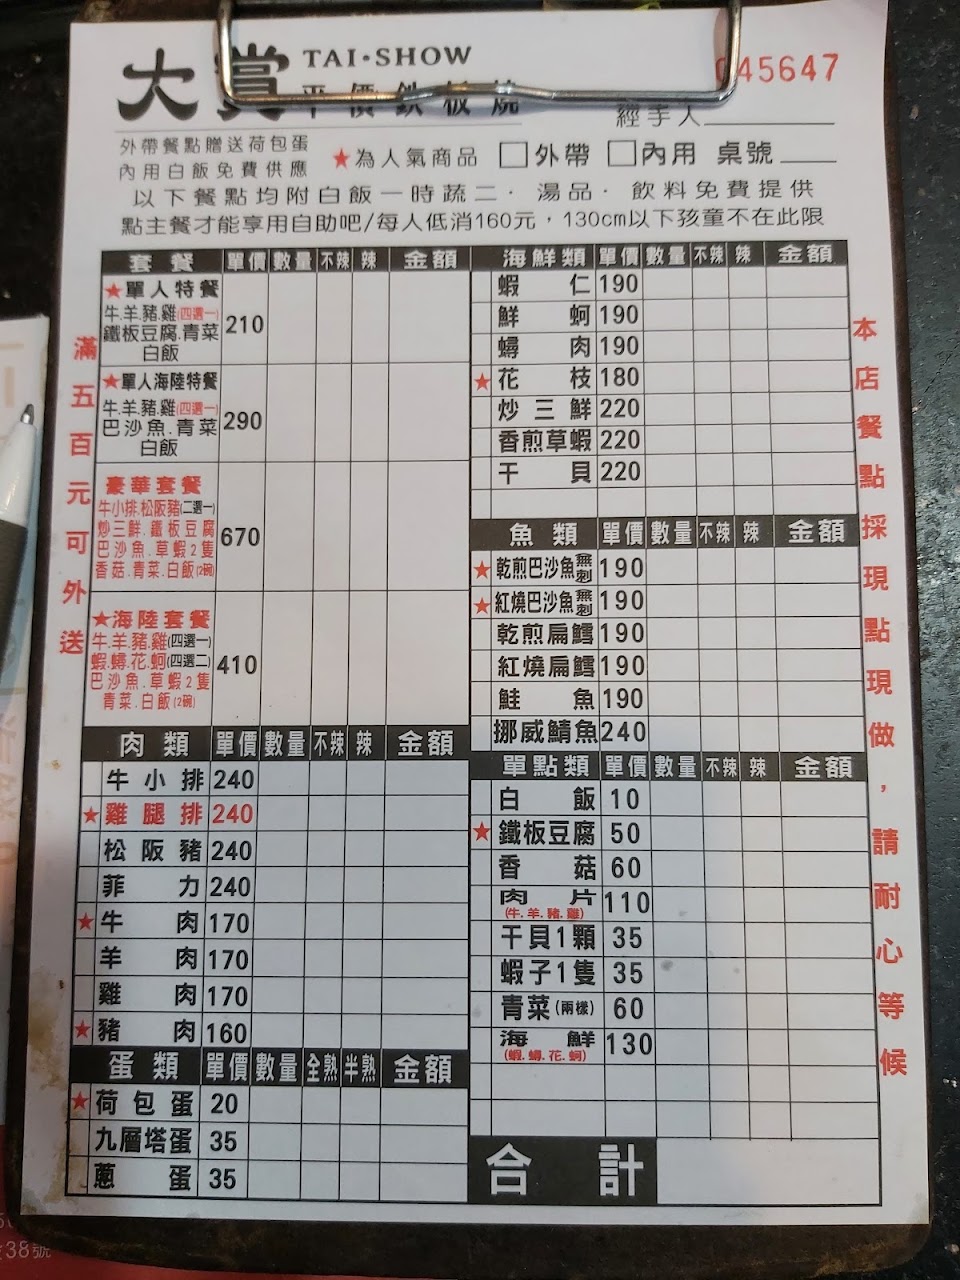 大賞 TAI·SHOW
平價鉄板燒
045647
經手人
外帶餐點贈送荷包蛋
內用白飯免費供應
★為人氣商品 □外帶 □內用 桌號
以下餐點均附白飯一時蔬二．湯品．飲料免費提供
點主餐才能享用自助吧/每人低消160元，130cm以下孩童不在此限
滿五百元可外送
套餐 單價 數量 不辣 辣 金額
★單人特餐
牛.羊.豬.雞(四選一)
鐵板豆腐.青菜
白飯
210
★單人海陸特餐
牛.羊.豬.雞(四選一)
巴沙魚.青菜
白飯
290
豪華套餐
牛小排.松阪豬(二選一)
炒三鮮.鐵板豆腐
巴沙魚.草蝦2隻
香菇.青菜.白飯(2碗)
670
★海陸套餐
牛.羊.豬.雞(四選一)
蝦.蟳.花.蚵(四選二)
巴沙魚.草蝦2隻
青菜.白飯(2碗)
410
肉類 單價 數量 不辣 辣 金額
牛小排 240
★雞腿排 240
松阪豬 240
菲力 240
★牛肉 170
羊肉 170
雞肉 170
★豬肉 160
蛋類 單價 數量 全熟 半熟 金額
★荷包蛋 20
九層塔蛋 35
蔥蛋 35
海鮮類 單價 數量 不辣 辣 金額
蝦仁 190
鮮蚵 190
蟳肉 190
★花枝 180
炒三鮮 220
香煎草蝦 220
干貝 220
魚類 單價 數量 不辣 辣 金額
★乾煎巴沙魚無刺 190
★紅燒巴沙魚無刺 190
乾煎扁鱈 190
紅燒扁鱈 190
鮭魚 190
挪威鯖魚 240
單點類 單價 數量 不辣 辣 金額
白飯 10
★鐵板豆腐 50
香菇 60
肉片 110
(牛.羊.豬.雞)
干貝1顆 35
蝦子1隻 35
青菜(兩樣) 60
海鮮 130
(蝦.蟳.花.蚵)
合計
本店餐點採現點現做，請耐心等候
38號